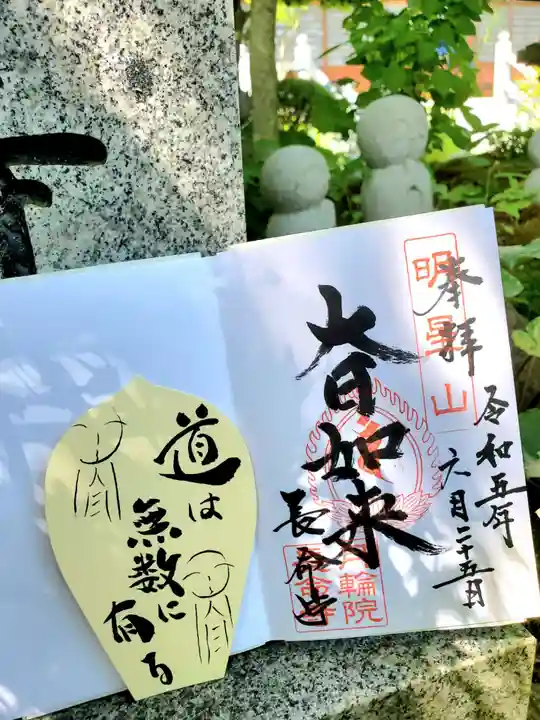 奉拝
明星山
令和五年
六月二十五日
大日如来
長命寺
月輪院
道は
無数に
有る